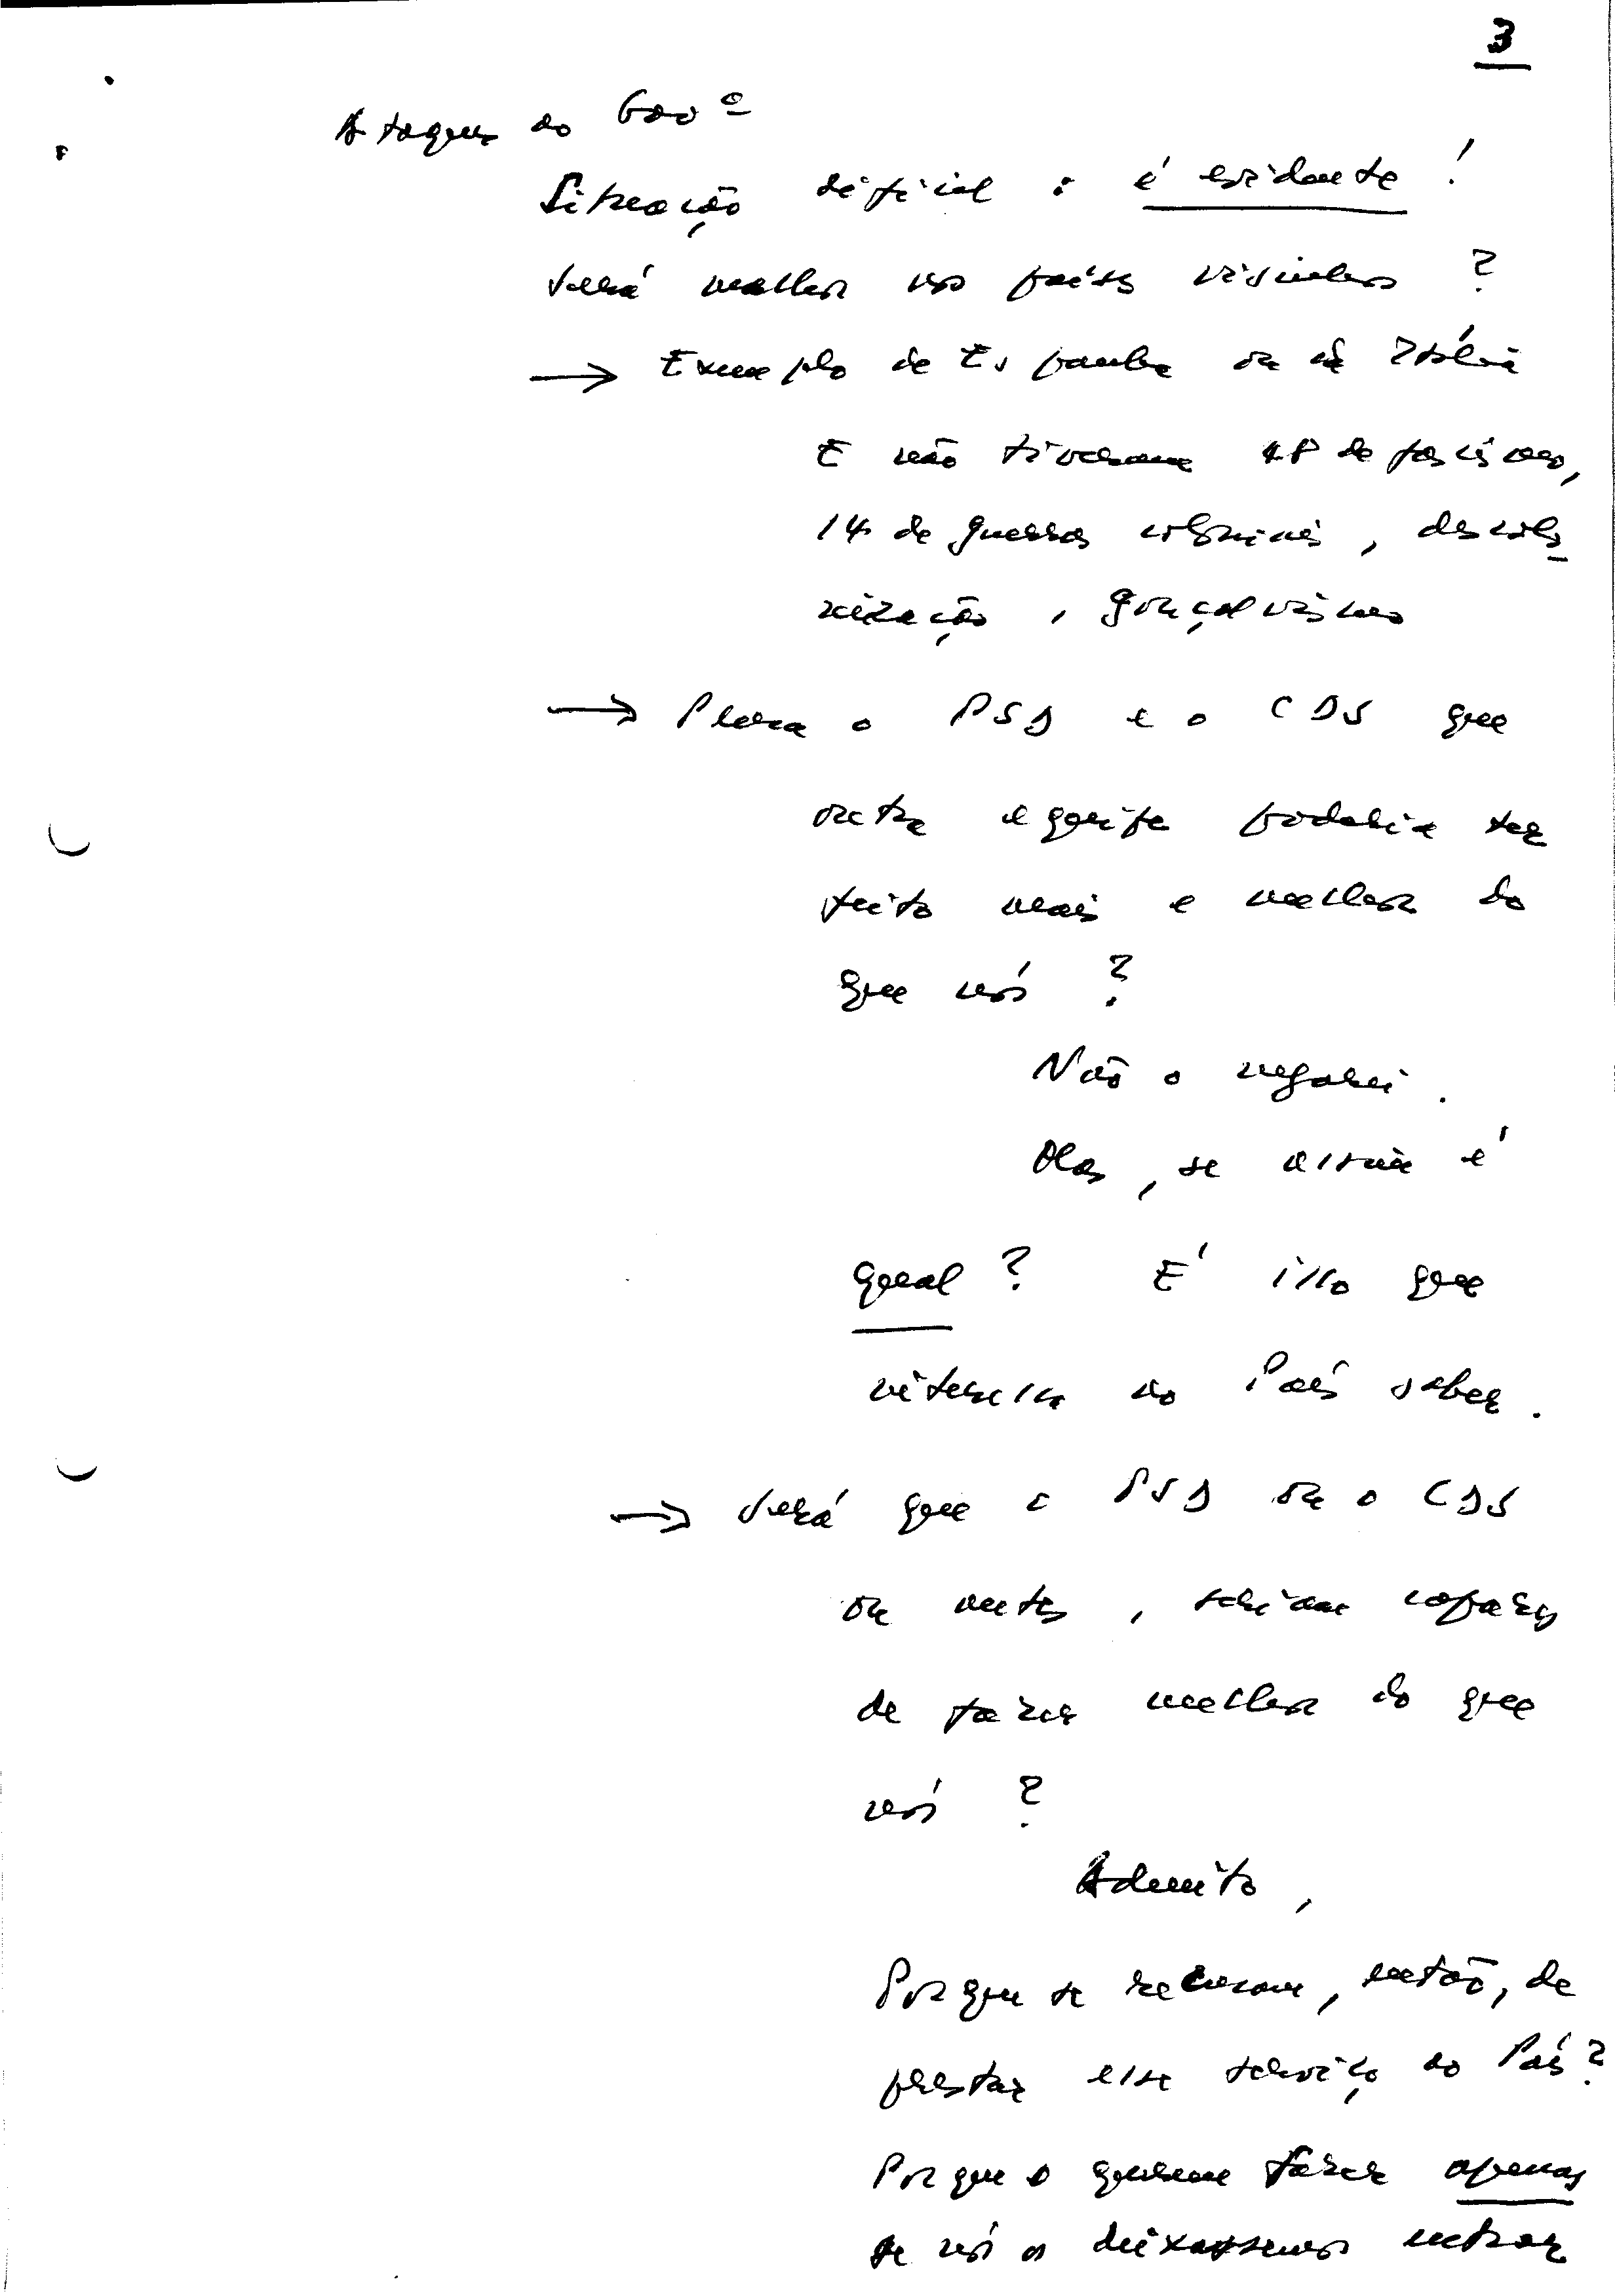 3
Ataques ao Govº
Situação difícil : é evidente !
Será melhor nos países visinhos ?
→ Exemplo de Espanha ou da Itália
E não tiveram 48 de fascismo,
14 de guerras coloniais, descolo-
nização, gonçalvismo
→ Pensa o PSD e o CDS que
outra equipa poderia ter
feito mais e melhor do
que nós ?
Não o negarei.
Mas, se assim é
qual ? É isso que
interessa ao País saber.
→ Será que o PSD ou o CDS
ou outros, seriam capazes
de fazer melhor do que
nós ?
Admito,
Porque se recusam, então, de
prestar esse serviço ao País?
Porque o querem fazer apenas
se nós os deixassemos entrar